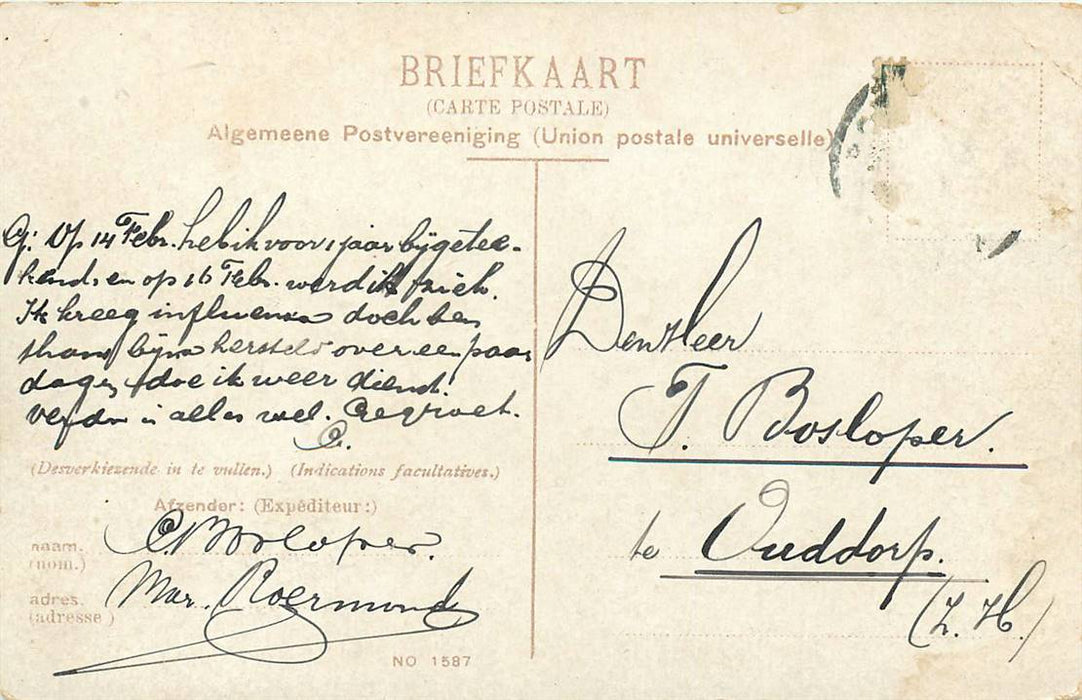 BRIEFKAART
(CARTE POSTALE)
Algemeene Postvereeniging (Union postale universelle)
G: Op 14 Febr. heb ik voor 1 jaar bijgetee-
kend, en op 16 Febr. werd ik ziek.
Ik kreeg influenza doch ben
thans bijna hersteld over een paar
dagen doe ik weer dienst.
Verder is alles wel. Gegroet.
C.
(Desverkiezende in te vullen.) (Indications facultatives.)
Afzender: (Expéditeur:)
naam. C. Bosloper.
(nom.)
adres. Mar. Roermond
(adresse)
NO 1587
Den Heer
T. Bosloper.
te Ouddorp.
(Z. H.)